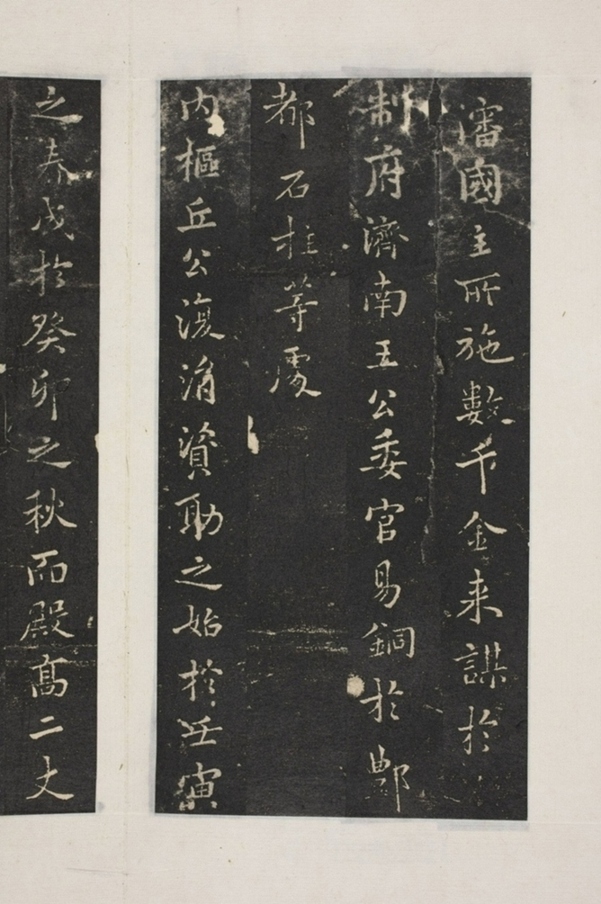 瀋國主所施數千金来謀於
制府濟南王公委官易銅於酆
都石柱等處
内樞丘公復涓資助之始於壬寅
之春成於癸卯之秋而殿髙二丈